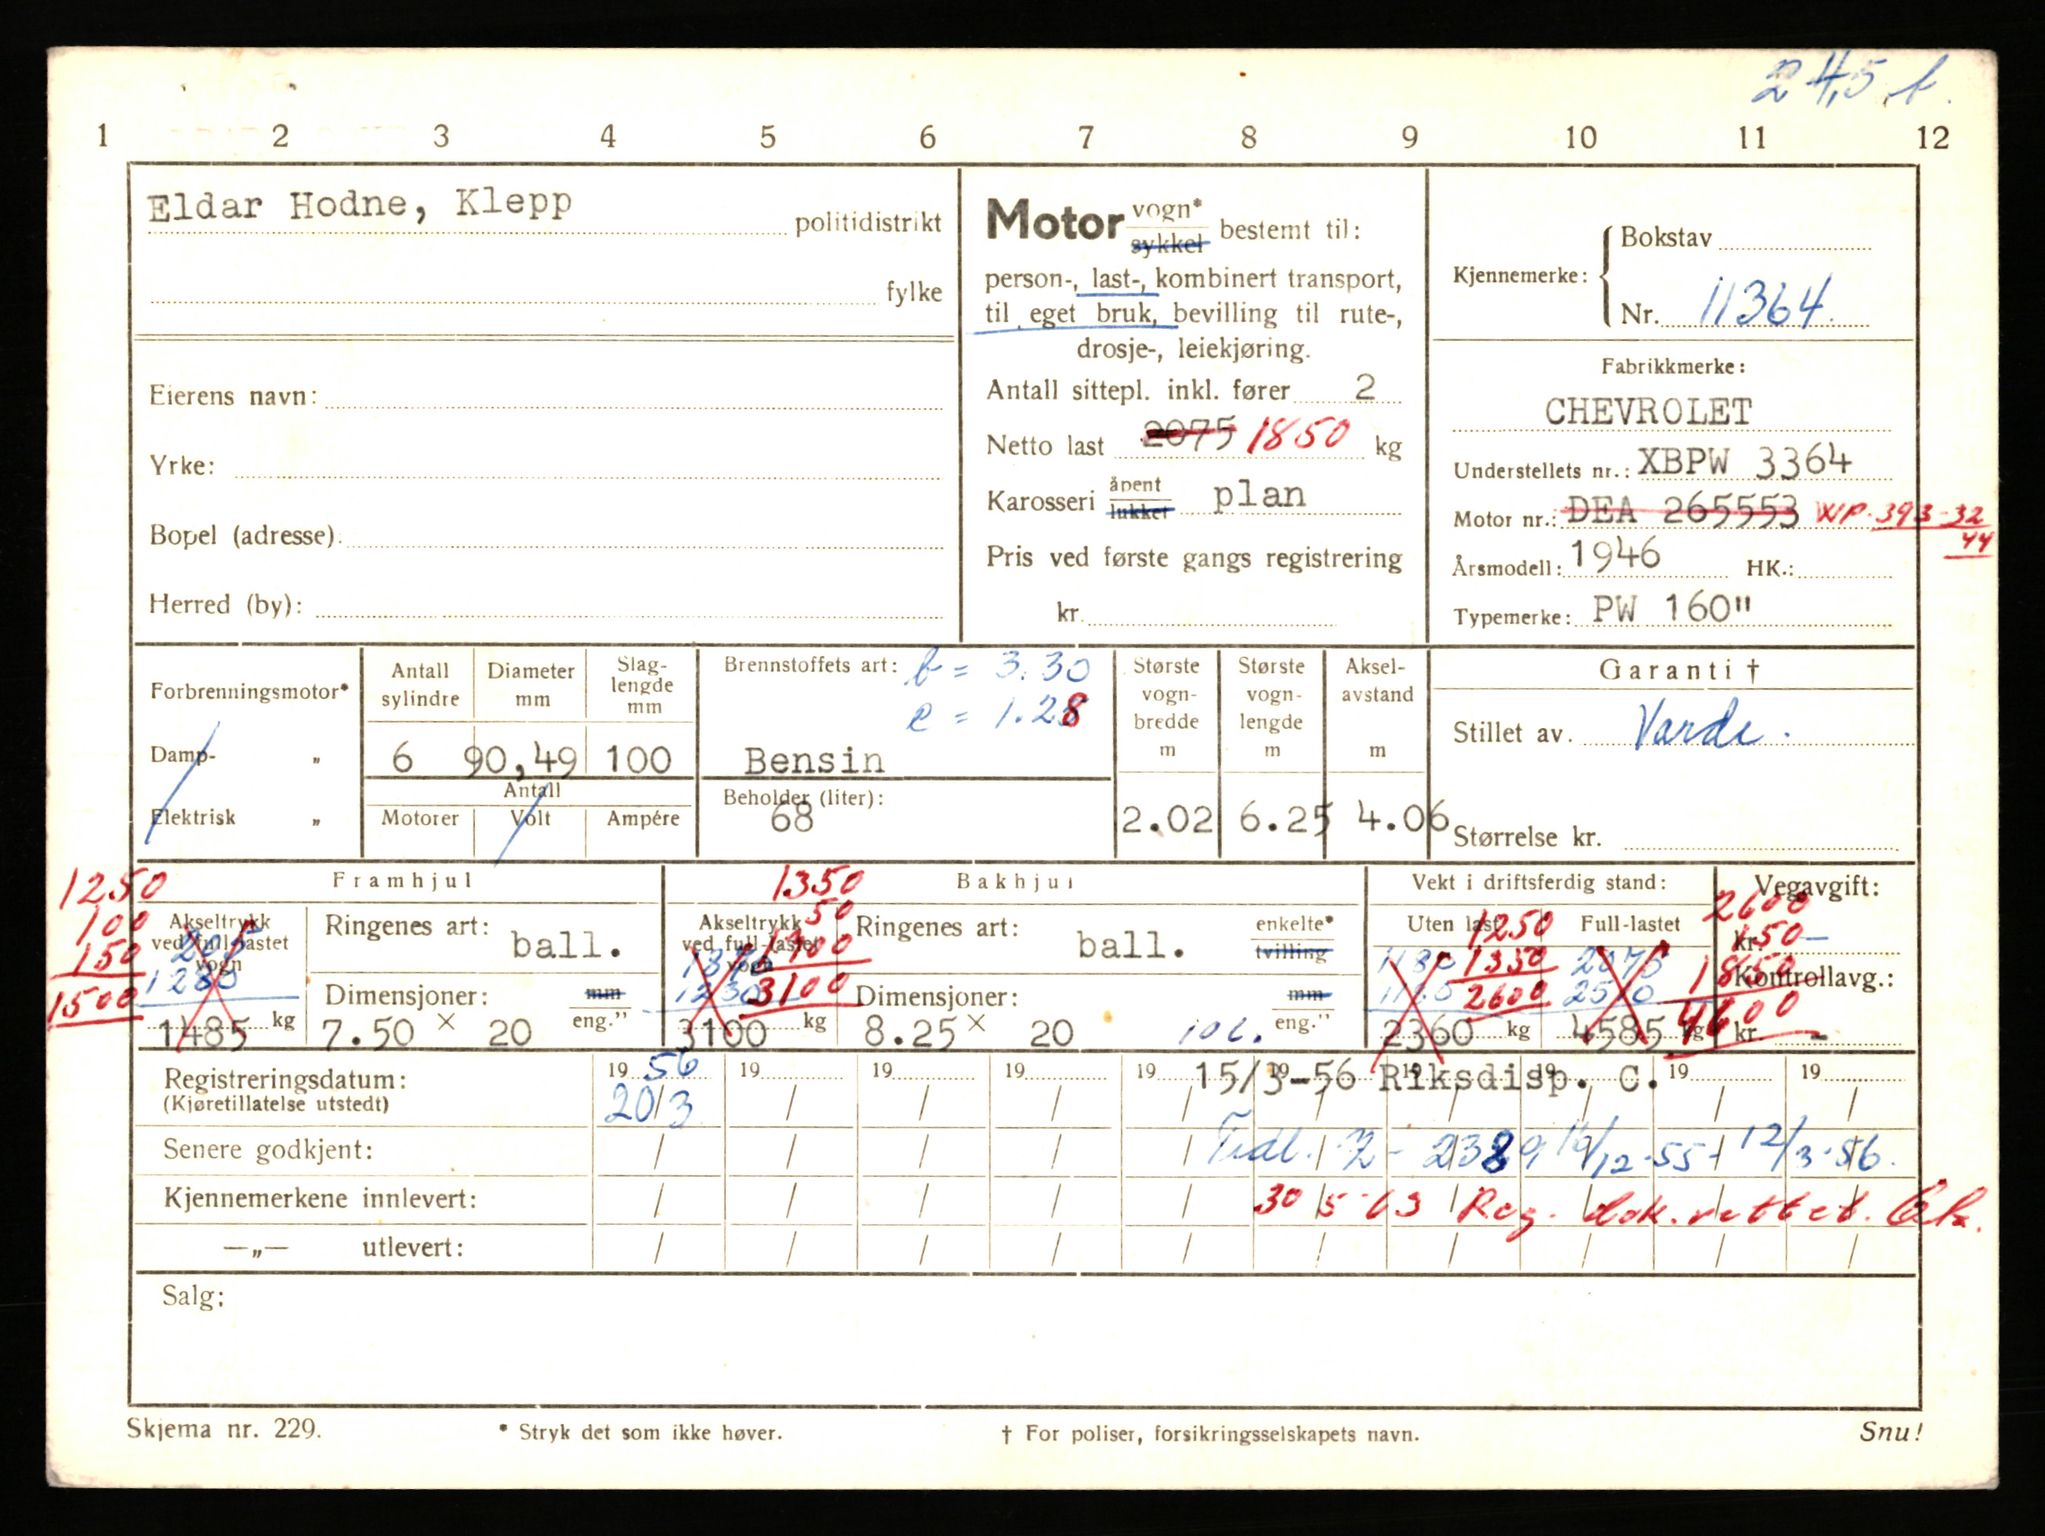 24,5
1 2 3 4 5 6 7 8 9 10 11 12
Eldar Hodne, Klepp politidistrikt
fylke
Eierens navn:
Yrke:
Bopel (adresse):
Herred (by):
Motor vogn* sykkel bestemt til:
person-, last-, kombinert transport,
til eget bruk, bevilling til rute-,
drosje-, leiekjøring.
Antall sittepl. inkl. fører 2
Netto last 2075 1850 kg
Karosseri åpent lukket plan
Pris ved første gangs registrering
kr.
Kjennemerke: Bokstav
Nr. 11364
Fabrikkmerke:
CHEVROLET
Understellets nr.: XBPW 3364
Motor nr.: DEA 265553 WP. 393-32
44
Årsmodell: 1946 HK.:
Typemerke: PW 160"
Forbrenningsmotor*
Damp- „
Elektrisk „
Antall sylindre
Diameter mm
Slag-lengde mm
6 90,49 100
Antall
Motorer Volt Ampére
Brennstoffets art: b = 3.30
e = 1.28
Bensin
Beholder (liter):
68
Største vogn-bredde m
2.02
Største vogn-lengde m
6.25
Aksel-avstand m
4.06
Garanti †
Stillet av. Varde.
Størrelse kr.
Framhjul
1250
100
150
1500
Akseltrykk ved full-lastet vogn
205
1280
1485 kg
Ringenes art: ball.
Dimensjoner: mm eng."
7.50 × 20
Bakhjul
1350
50
1700
3100
Akseltrykk ved full-lastet vogn
1870
1230
3100 kg
Ringenes art: ball. enkelte* tvilling
Dimensjoner: mm eng."
8.25 × 20 10 l.
Vekt i driftsferdig stand:
Uten last Full-lastet
1250
1350
2600
1180
2360 kg
2075
2510
4585 kg
Vegavgift:
2600
kr. 150 -
1850
Kontrollavg.:
4600
kr. -
Registreringsdatum: 19 56 19 19 19 19 19 19 19 19 19
(Kjøretillatelse utstedt) 20/3
15/3-56 Riksdisp. C.
Senere godkjent: Tidl. Z - 2389, 16/12-55 - 12/3-56.
Kjennemerkene innlevert: 30/5-63 Reg. dok. rettet.
—„— utlevert:
Salg:
Skjema nr. 229. * Stryk det som ikke høver. † For poliser, forsikringsselskapets navn. Snu!